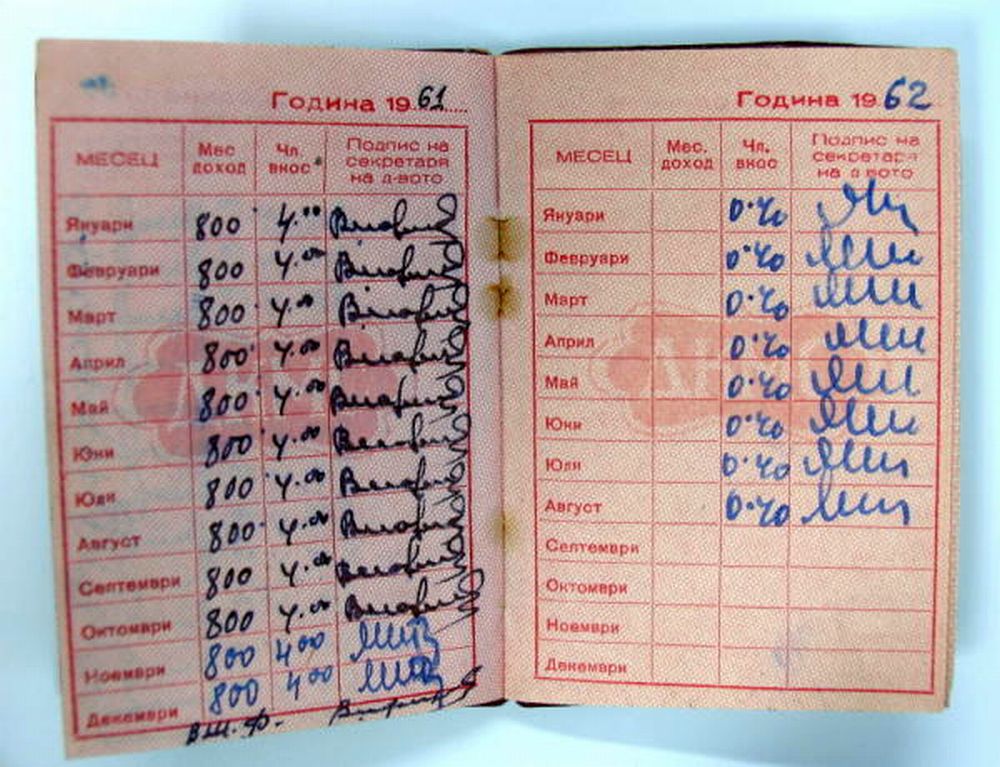 Година 19 61
МЕСЕЦ Мес. доход Чл. внос Подпис на секретаря на д-вото
Януари 800 4.00
Февруари 800 4.00
Март 800 4.00
Април 800 4.00
Май 800 4.00
Юни 800 4.00
Юли 800 4.00
Август 800 4.00
Септември 800 4.00
Октомври 800 4.00
Ноември 800 4.00
Декември 800 4.00
Година 19 62
МЕСЕЦ Мес. доход Чл. внос Подпис на секретаря на д-вото
Януари 0.40
Февруари 0.40
Март 0.40
Април 0.40
Май 0.40
Юни 0.40
Юли 0.40
Август 0.40
Септември
Октомври
Ноември
Декември